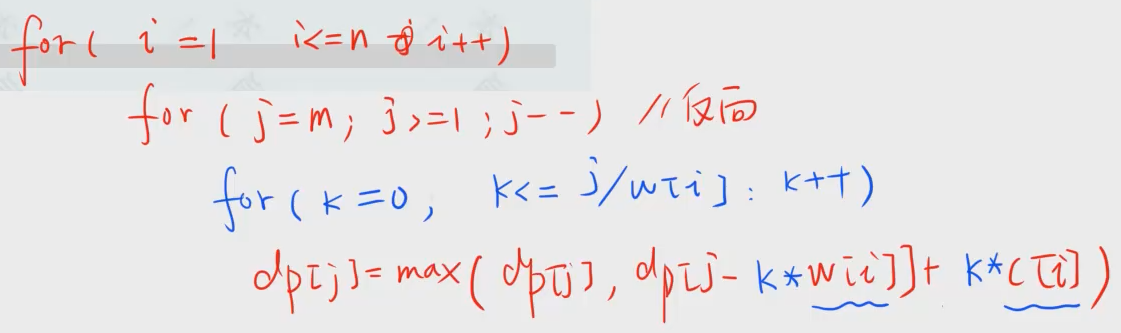 for( i=1 i<=n i++)
for ( j=m; j>=1; j--) //反面
for( k=0, k<= j/w[i]: k++)
dp[j]=max( dp[j], dp[j- k*w[i]]+ k*c[i])